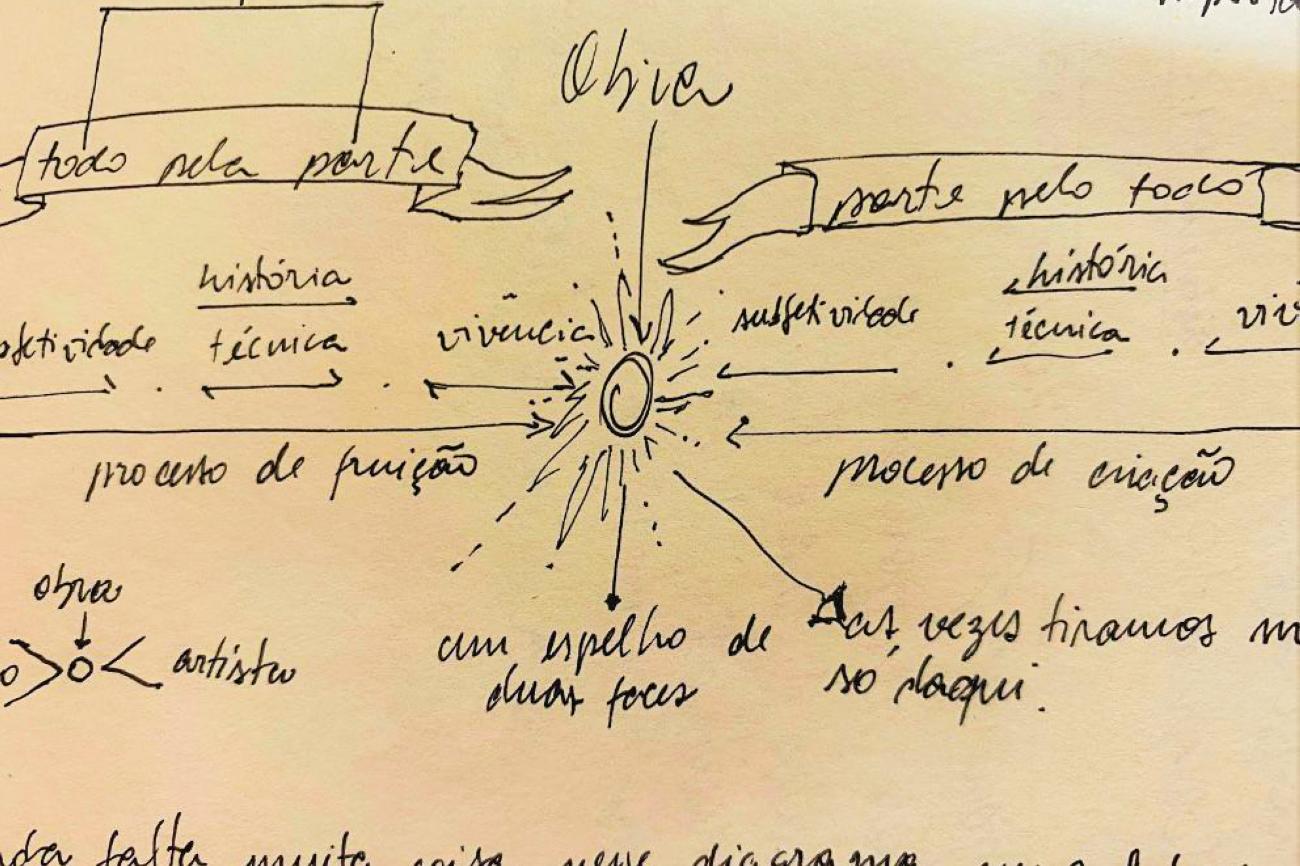 Obra
todo pela parte
parte pelo todo
história
técnica
vivência
subjetividade
história
técnica
processo de fruição
processo de criação
obra
artista
um espelho de
duas faces
as vezes tiramos
só daqui.
falta muita coisa nesse diagrama